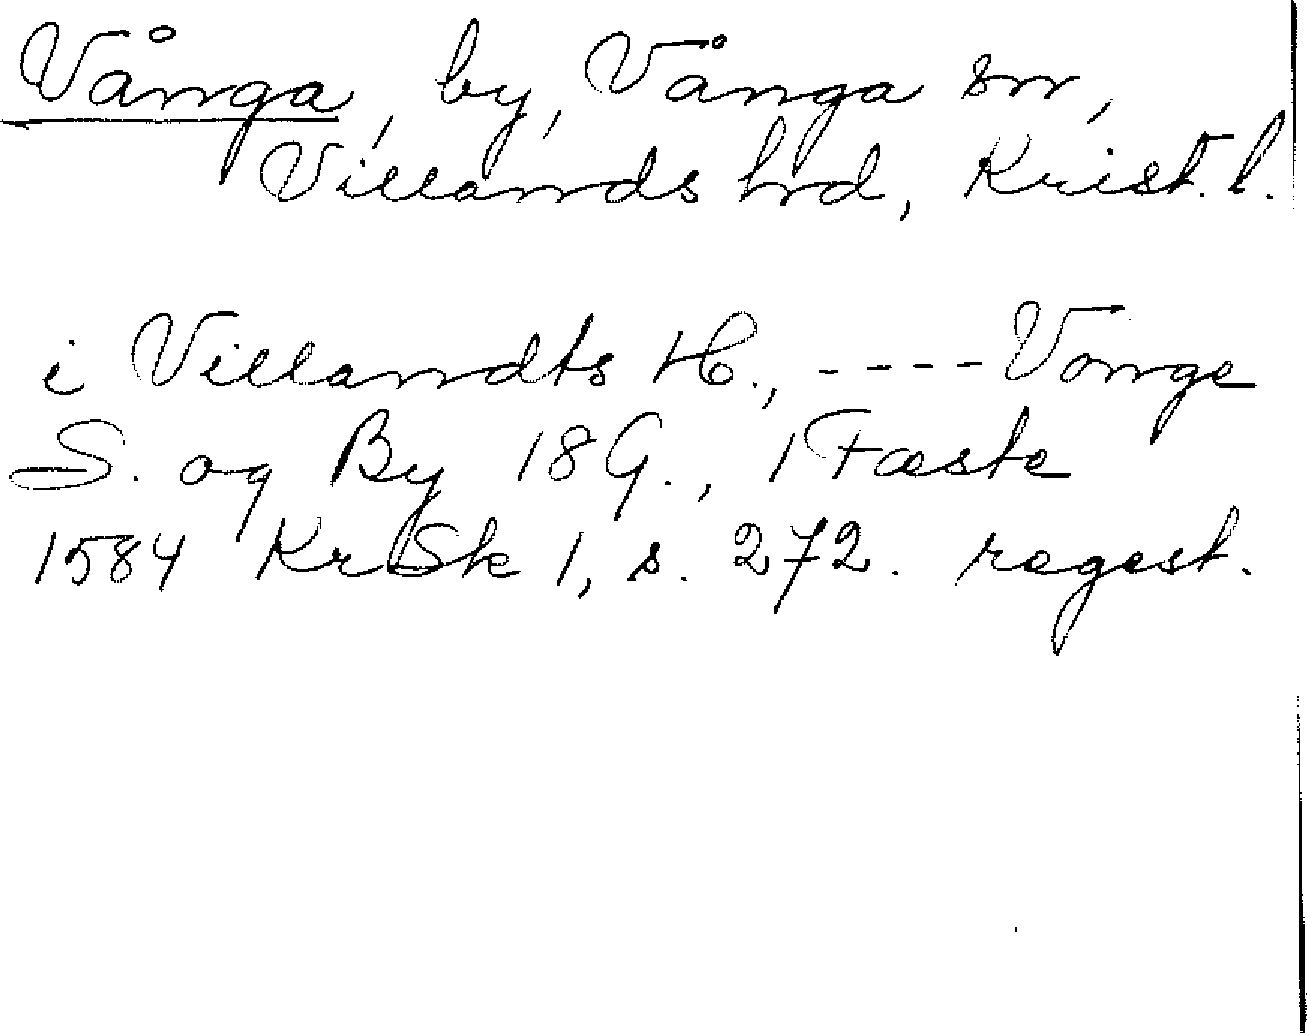 Vånga, by, Vånga sn,
Villands hrd, Krist. l.
i Villandts H., ---- Vonge
S. og By 18 G., 1 Fæste
1584 KrSk 1, s. 272. regest.